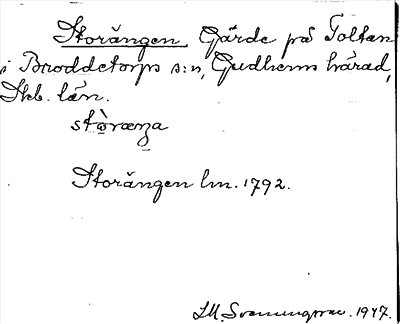 Storängen Gärde på Toltan
i Broddetorps s:n, Gudhems härad,
Skb. län.
stòræŋa
Storängen lm. 1792.
1947.